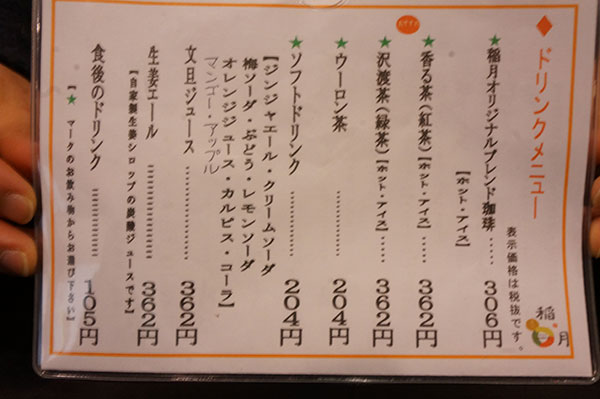 ◆ドリンクメニュー
表示価格は税抜です。
稲月
★稲月オリジナルブレンド珈琲……306円
【ホット・アイス】
★香る茶(紅茶)【ホット・アイス】……362円
おすすめ
★沢渡茶(緑茶)【ホット・アイス】……362円
★ウーロン茶…………204円
★ソフトドリンク…………204円
【ジンジャエール・クリームソーダ
梅ソーダ・ぶどう・レモンソーダ
オレンジジュース・カルピス・コーラ】
マンゴー・アップル
文旦ジュース…………362円
生姜エール…………362円
【自家製生姜シロップの炭酸ジュースです】
食後のドリンク…………105円
【★マークのお飲み物からお選び下さい】